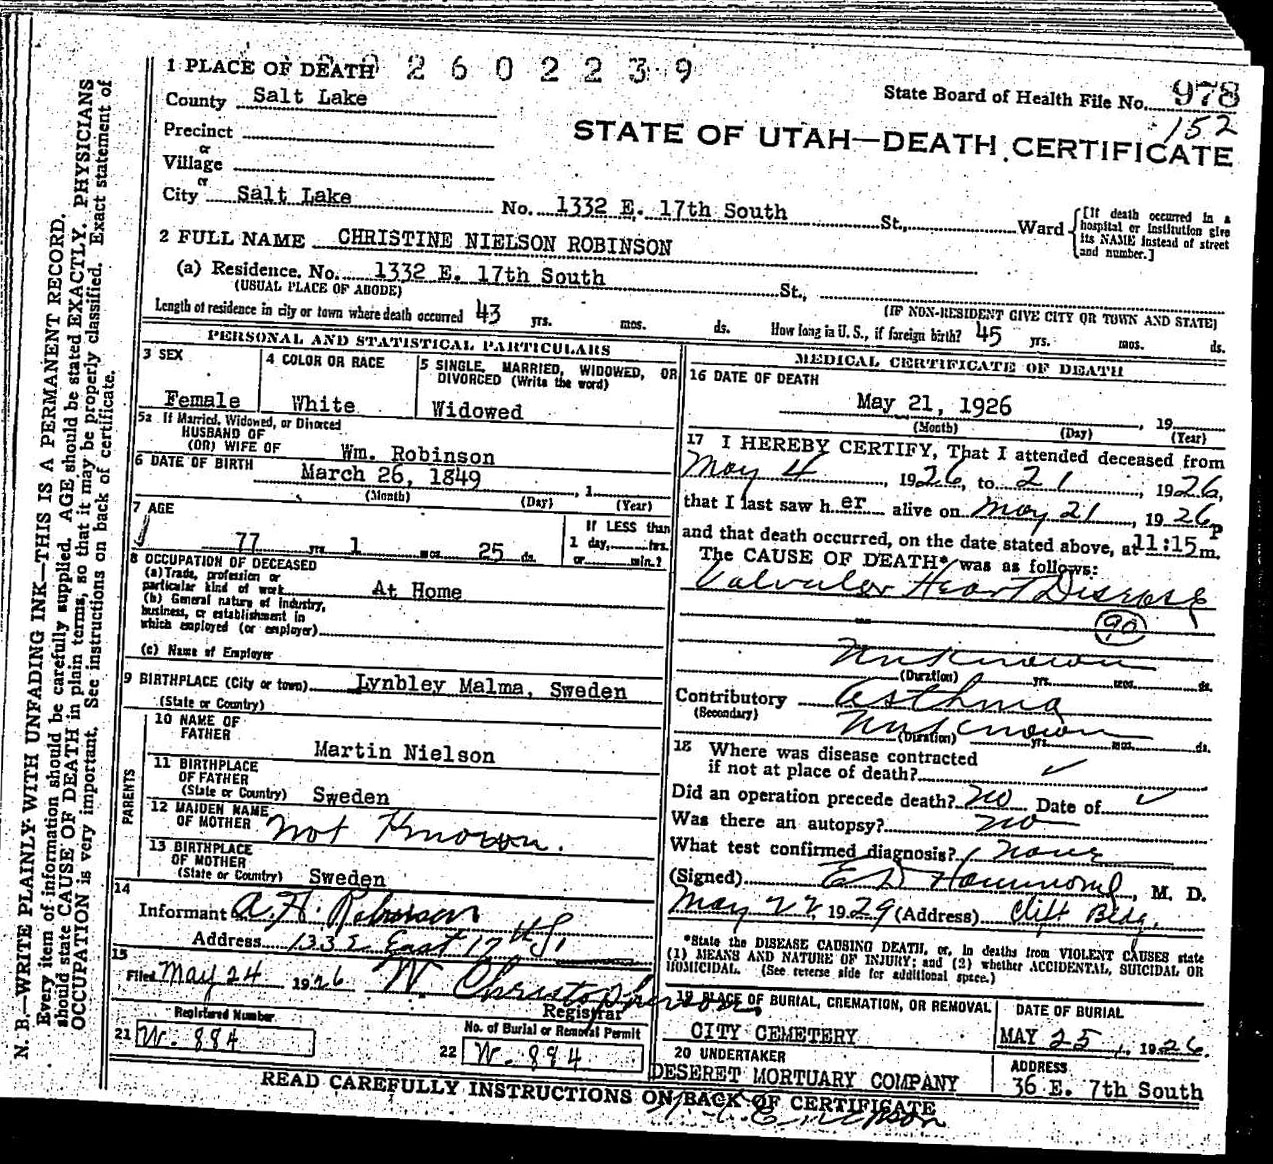 N. B.—WRITE PLAINLY WITH UNFADING INK—THIS IS A PERMANENT RECORD.
Every item of information should be carefully supplied. AGE should be stated EXACTLY. PHYSICIANS
should state CAUSE OF DEATH in plain terms, so that it may be properly classified. Exact statement of
OCCUPATION is very important. See instructions on back of certificate.
1 PLACE OF DEATH 2602239
State Board of Health File No. 978
152
County Salt Lake
STATE OF UTAH—DEATH CERTIFICATE
Precinct
or
Village
or
City Salt Lake No. 1332 E. 17th South St., Ward
[If death occurred in a
hospital or institution give
its NAME instead of street
and number.]
2 FULL NAME CHRISTINE NIELSON ROBINSON
(a) Residence. No. 1332 E. 17th South St.,
(USUAL PLACE OF ABODE) (IF NON-RESIDENT GIVE CITY OR TOWN AND STATE)
Length of residence in city or town where death occurred 43 yrs. mos. ds. How long in U. S., if foreign birth? 45 yrs. mos. ds.
PERSONAL AND STATISTICAL PARTICULARS
3 SEX
Female
4 COLOR OR RACE
White
5 SINGLE, MARRIED, WIDOWED, OR
DIVORCED (Write the word)
Widowed
5a If Married, Widowed, or Divorced
HUSBAND OF
(OR) WIFE OF Wm. Robinson
6 DATE OF BIRTH March 26, 1849 , 1
(Month) (Day) (Year)
7 AGE
77 yrs 1 mos. 25 ds.
If LESS than
1 day, hrs.
or min.?
8 OCCUPATION OF DECEASED
(a) Trade, profession or
particular kind of work At Home
(b) General nature of industry,
business, or establishment in
which employed (or employer)
(c) Name of Employer
9 BIRTHPLACE (City or town) Lynbley Malma, Sweden
(State or Country)
PARENTS
10 NAME OF
FATHER Martin Nielson
11 BIRTHPLACE
OF FATHER
(State or Country) Sweden
12 MAIDEN NAME
OF MOTHER Not Known.
13 BIRTHPLACE
OF MOTHER
(State or Country) Sweden
14
Informant A. H. Robinson
Address 1332 East 17th S.
15
Filed May 24 1926 W. Christopherson
Registrar
Registered Number
21 W. 884
No. of Burial or Removal Permit
22 W. 884
MEDICAL CERTIFICATE OF DEATH
16 DATE OF DEATH
May 21, 1926 , 19
(Month) (Day) (Year)
17 I HEREBY CERTIFY, That I attended deceased from
May 4, 1926, to 21, 1926,
that I last saw her alive on May 21, 1926
and that death occurred, on the date stated above, at 11:15 P m.
The CAUSE OF DEATH* was as follows:
Valvular Heart Disease
90
Unknown
(Duration) yrs. mos. ds.
Contributory Asthma
(Secondary) Unknown
(Duration) yrs. mos. ds.
18 Where was disease contracted
if not at place of death? ✓
Did an operation precede death? No Date of ✓
Was there an autopsy? no
What test confirmed diagnosis? None
(Signed) E D Hammond, M. D.
May 22 1929 (Address) Clift Bldg.
*State the DISEASE CAUSING DEATH, or, in deaths from VIOLENT CAUSES state
(1) MEANS AND NATURE OF INJURY; and (2) whether ACCIDENTAL, SUICIDAL OR
HOMICIDAL. (See reverse side for additional space.)
19 PLACE OF BURIAL, CREMATION, OR REMOVAL
CITY CEMETERY
DATE OF BURIAL
MAY 25, 1926.
20 UNDERTAKER
DESERET MORTUARY COMPANY
ADDRESS
36 E. 7th South
READ CAREFULLY INSTRUCTIONS ON BACK OF CERTIFICATE